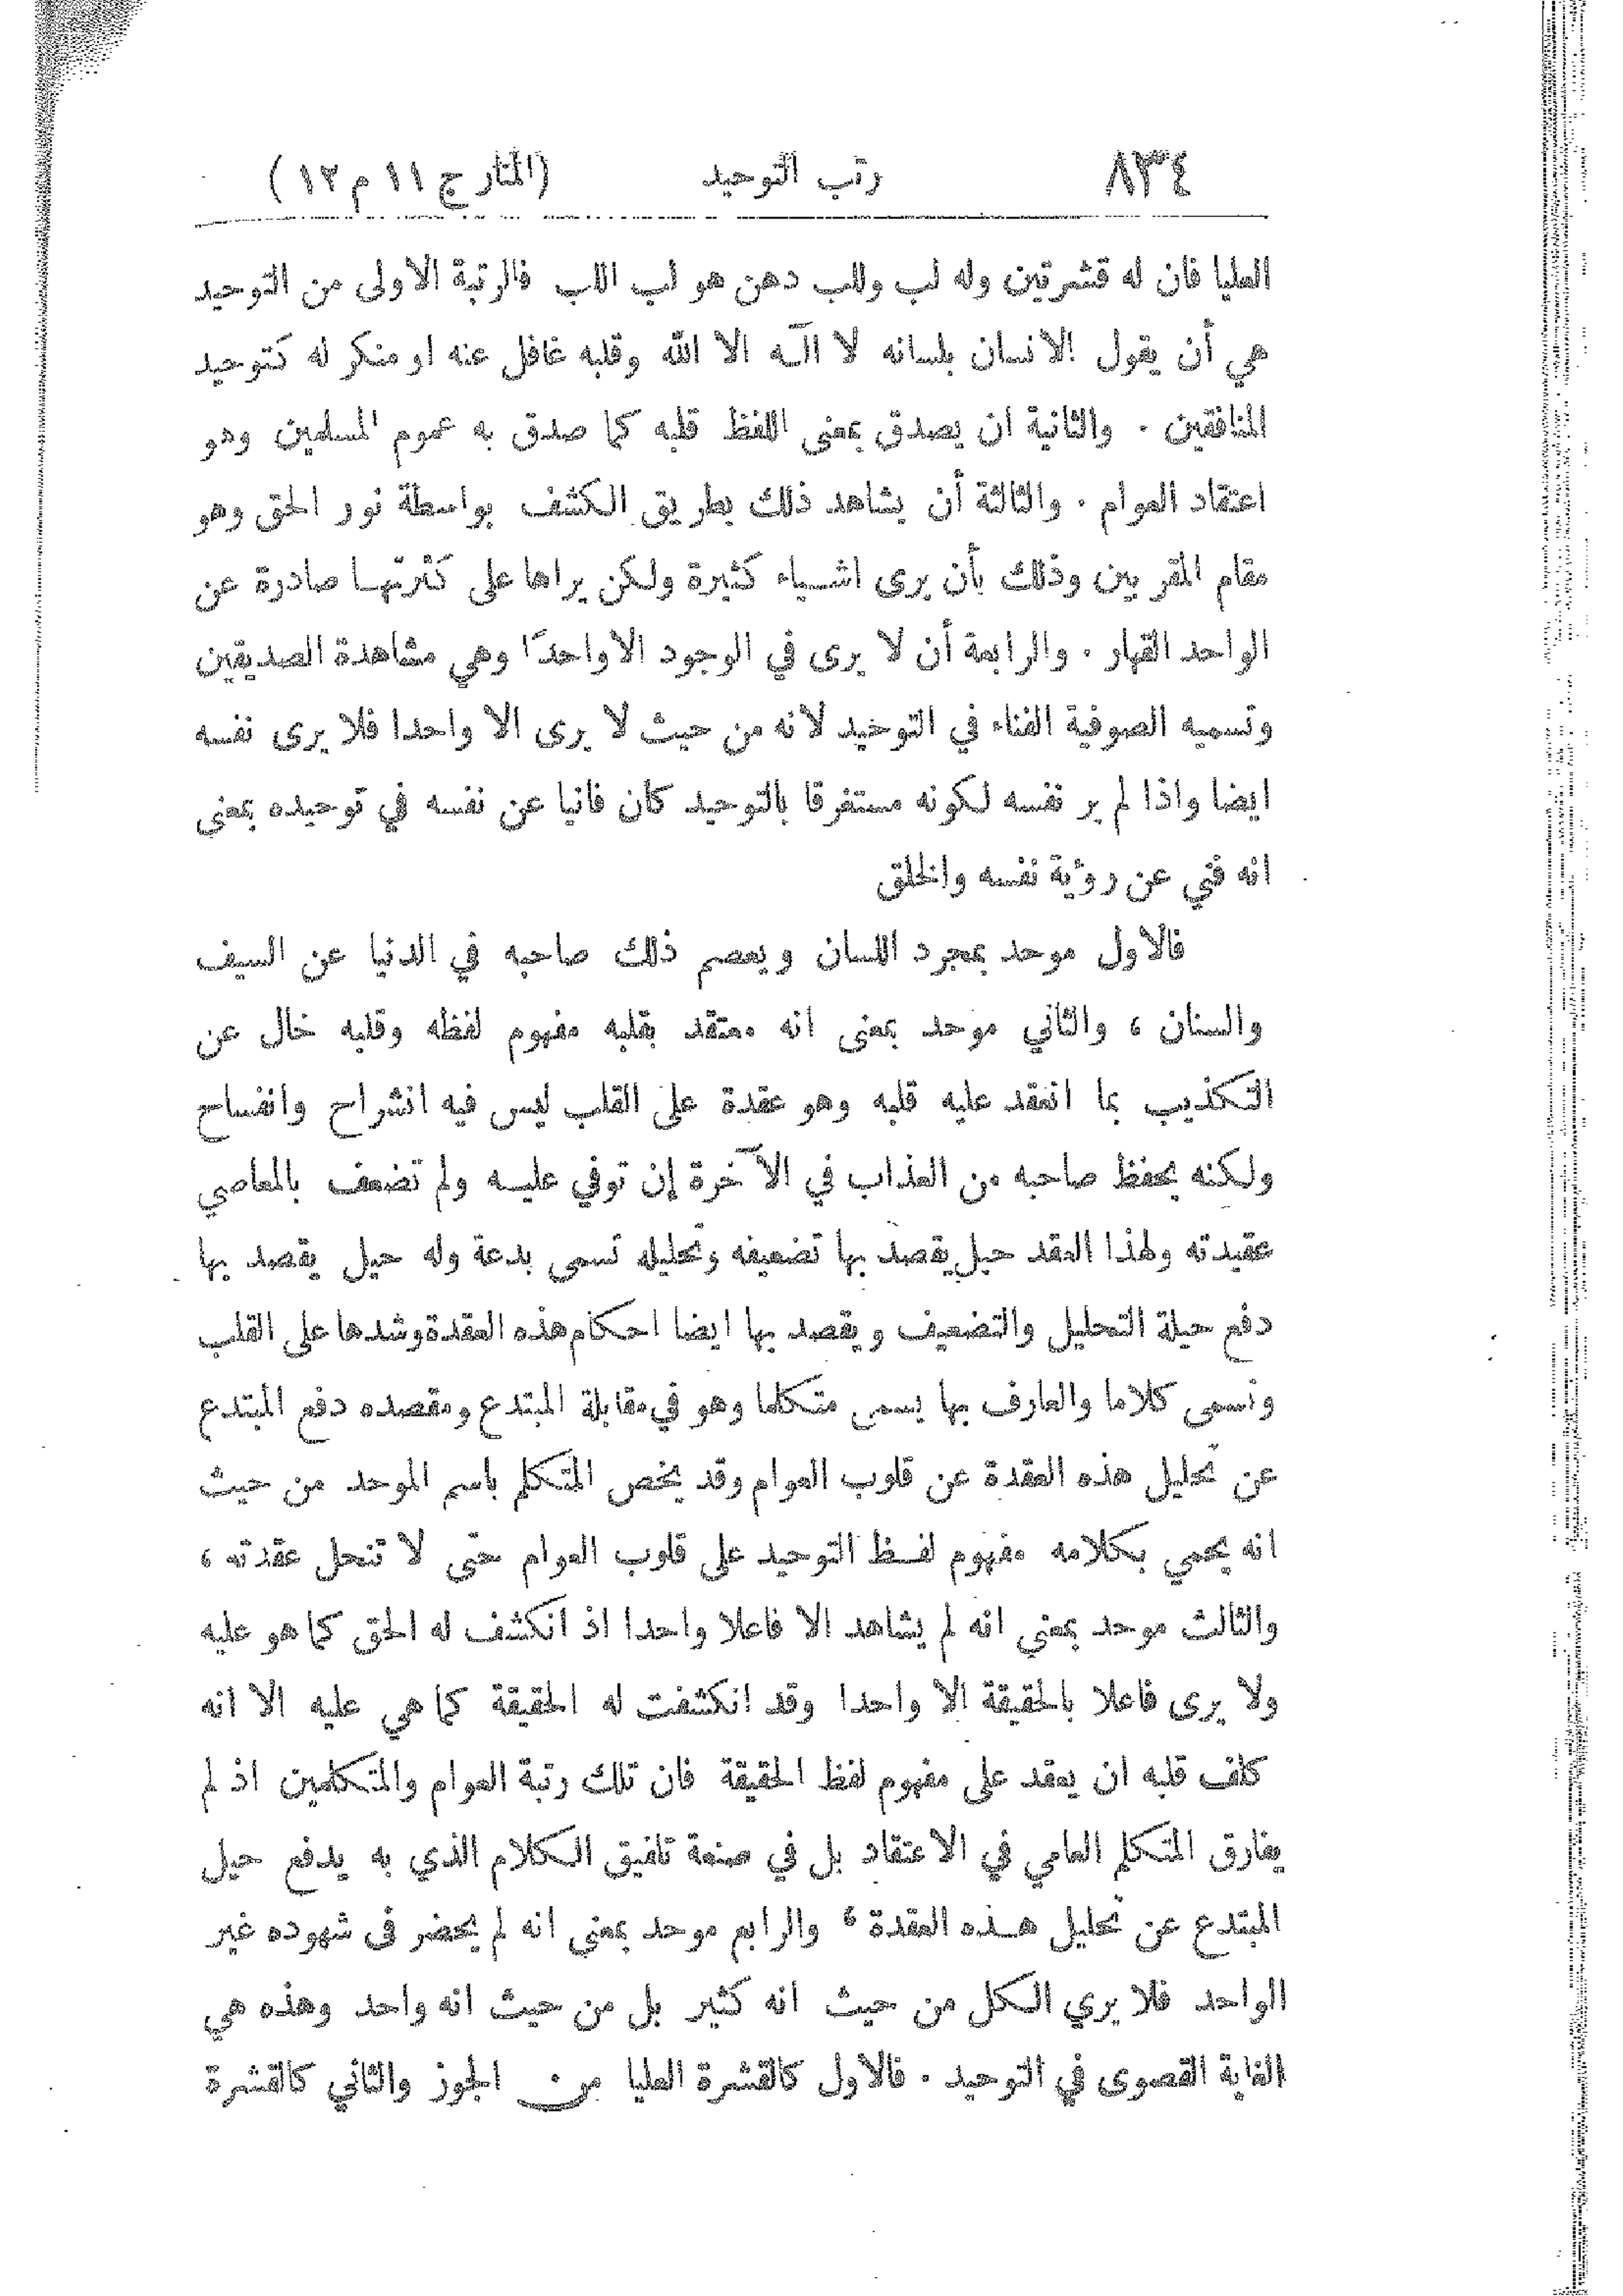 ٨٣٤ رتب التوحيد (المنار ج ١١ م ١٢)
العليا فان له قشرتين وله لب وللب دهن هو لب اللب فالرتبة الاولى من التوحيد
هي أن يقول الانسان بلسانه لا اآله الا الله وقلبه غافل عنه او منكر له كتوحيد
المنافقين . والثانية ان يصدق بمعنى اللفظ قلبه كما صدق به عموم المسلمين وهو
اعتقاد العوام . والثالثة أن يشاهد ذلك بطريق الكشف بواسطة نور الحق وهو
مقام المقربين وذلك بأن يرى اشياء كثيرة ولكن يراها على كثرتها صادرة عن
الواحد القهار . والرابعة أن لا يرى في الوجود الا واحدًا وهي مشاهدة الصديقين
وتسميه الصوفية الفناء في التوحيد لانه من حيث لا يرى الا واحدا فلا يرى نفسه
ايضا واذا لم ير نفسه لكونه مستغرقا بالتوحيد كان فانيا عن نفسه في توحيده بمعنى
انه فني عن رؤية نفسه والخلق
فالاول موحد بمجرد اللسان ويعصم ذلك صاحبه في الدنيا عن السيف
والسنان ، والثاني موحد بمعنى انه معتقد بقلبه مفهوم لفظه وقلبه خال عن
التكذيب بما انعقد عليه قلبه وهو عقدة على القلب ليس فيه انشراح وانفساح
ولكنه يحفظ صاحبه من العذاب في الآخرة إن توفي عليه ولم تضعف بالمعاصي
عقيدته ولهذا العقد حيل يقصد بها تضعيفه وتحليله تسمى بدعة وله حيل يقصد بها
دفع حيلة التحليل والتضعيف ويقصد بها ايضا احكام هذه العقدة وشدها على القلب
وتسمى كلاما والعارف بها يسمى متكلما وهو في مقابلة المبتدع ومقصده دفع المبتدع
عن تحليل هذه العقدة عن قلوب العوام وقد يخص المتكلم باسم الموحد من حيث
انه يحمي بكلامه مفهوم لفظ التوحيد على قلوب العوام حتى لا تنحل عقدته ،
والثالث موحد بمعني انه لم يشاهد الا فاعلا واحدا اذ انكشف له الحق كما هو عليه
ولا يرى فاعلا بالحقيقة الا واحدا وقد انكشفت له الحقيقة كما هي عليه الا انه
كلف قلبه ان يعقد على مفهوم لفظ الحقيقة فان تلك رتبة العوام والمتكلمين اذ لم
يفارق المتكلم العامي في الاعتقاد بل في صنعة تلفيق الكلام الذي به يدفع حيل
المبتدع عن تحليل هذه العقدة ، والرابع موحد بمعني انه لم يحضر فى شهوده غير
الواحد فلا يري الكل من حيث انه كثير بل من حيث انه واحد وهذه هي
الغاية القصوى في التوحيد . فالاول كالقشرة العليا من الجوز والثاني كالقشرة